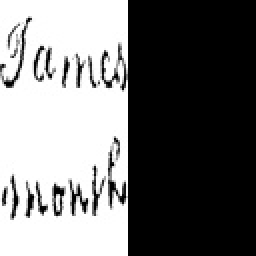 James
month